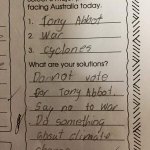 facing Australia today.
1. Tony Abbot
2. War
3. Cyclones
What are your solutions?
Do not vote
for Tony Abbot.
Say no to war
Do something
about climate